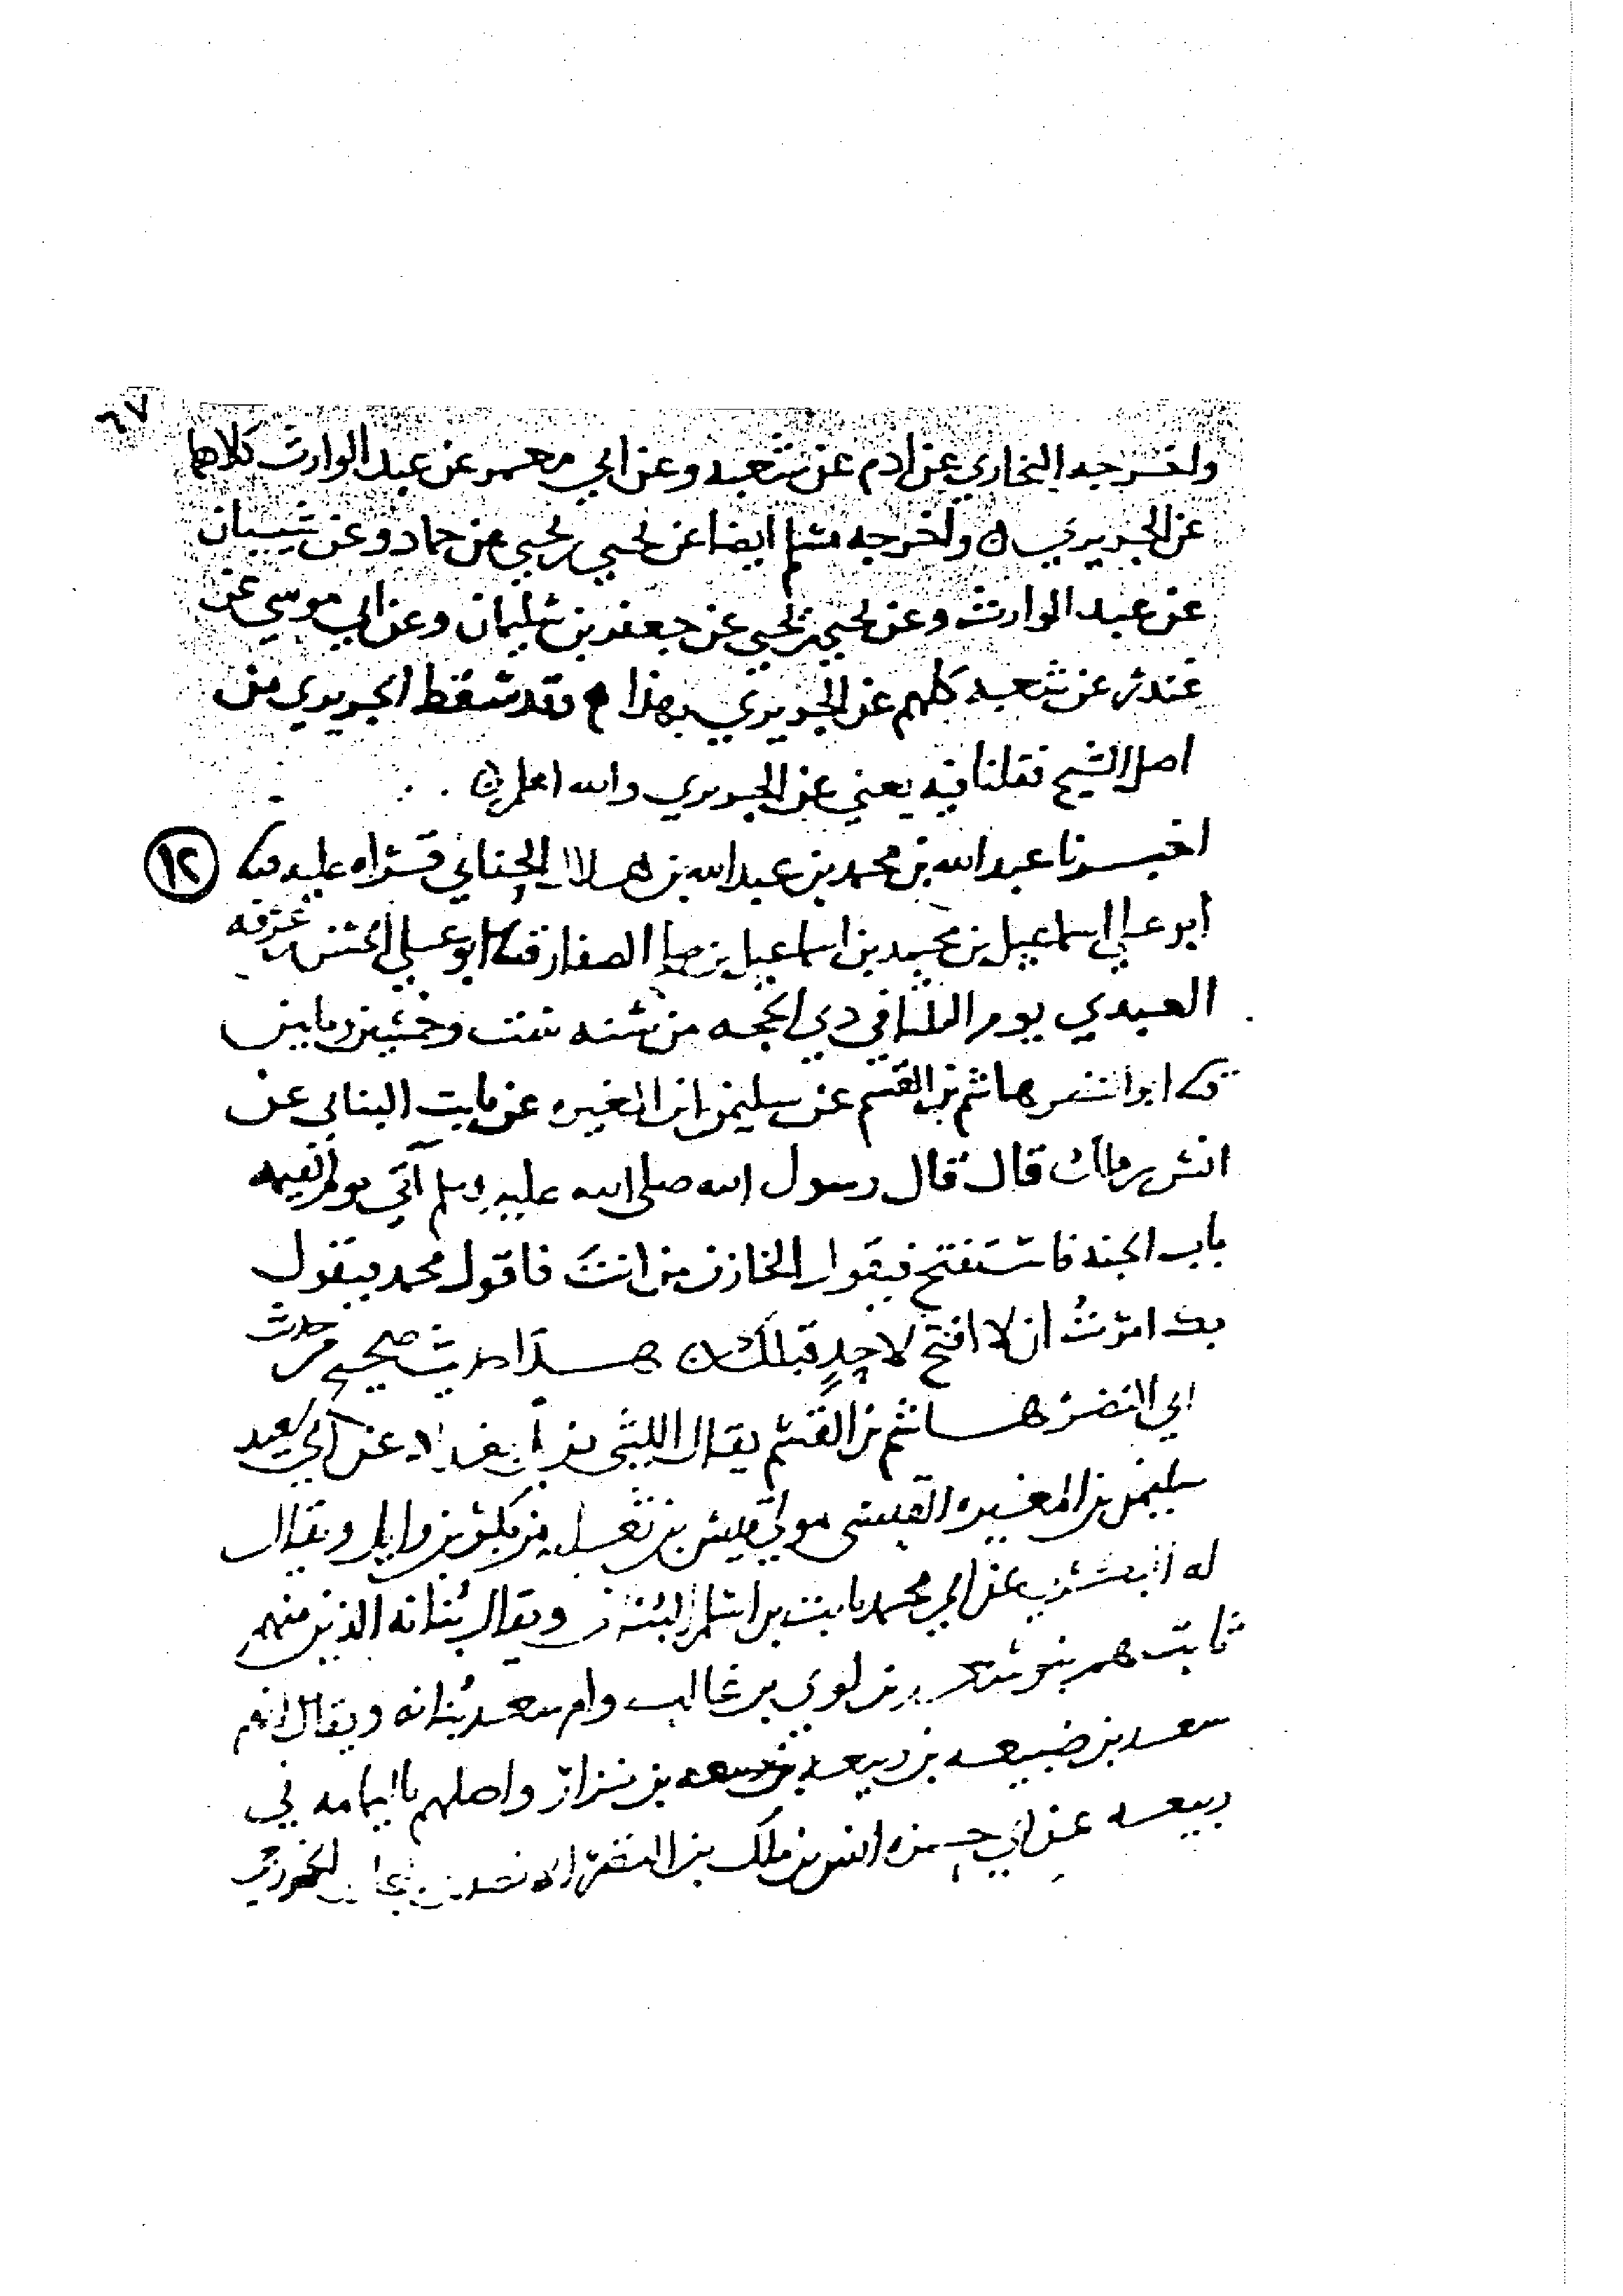 ٦٧
واخرجه البخاري عن ادم عن شعبه وعن ابي معمر عن عبد الوارث كلاهما
عن الجريري ه واخرجه مسلم ايضا عن يحيي بن يحيي عن حماد وعن شيبان
عن عبد الوارث وعن يحيي بن يحيي عن جعفر بن سليمان وعن ابي موسي عن
غندر عن شعبه كلهم عن الجريري بهذا وقد سقط الجريري من
اصل الشيخ فقلنا فيه يعني عن الجريري والله اعلم ه
اخبرنا عبد الله بن محمد بن عبد الله بن هلال الحنائي قراه عليه ثنا ١٢
ابو علي اسماعيل بن محمد بن اسماعيل بن صالح الصفار ثنا ابو علي الحسن بن عرفه
العبدي يوم الثلثا في ذي الحجه من سنه ست وخمسين ومايتين
ثنا ابو النضر هاشم بن القسم عن سليمن بن المغيره عن ثابت البناني عن
انس بن مالك قال قال رسول الله صلى الله عليه وسلم آتي يوم القيمه
باب الجنه فاستفتح فيقول الخازن من انتَ فاقول محمد فيقول
بك امرتُ ان لا افتح لاحدٍ قبلك ه هذا حديث صحيح من حديث
ابي النضر هاشم بن القسم يقال الليثي عن ابي سعيد
سليمن بن المغيره القيسي مولى قيس بن ثعلبه من بكر بن وايل ويقال
له عن ابي محمد ثابت بن اسلم البناني ويقال بُنانه الذين منهم
ثابت هم بنو سعد بن لوي بن غالب وام سعد بُنانه ويقال انهم
سعد بن ضبيعه بن ربيعه بن نزار واصلهم باليمامه في
ربيعه عن ابي حمزه انس بن ملك بن النضر الانصاري الخزرجي